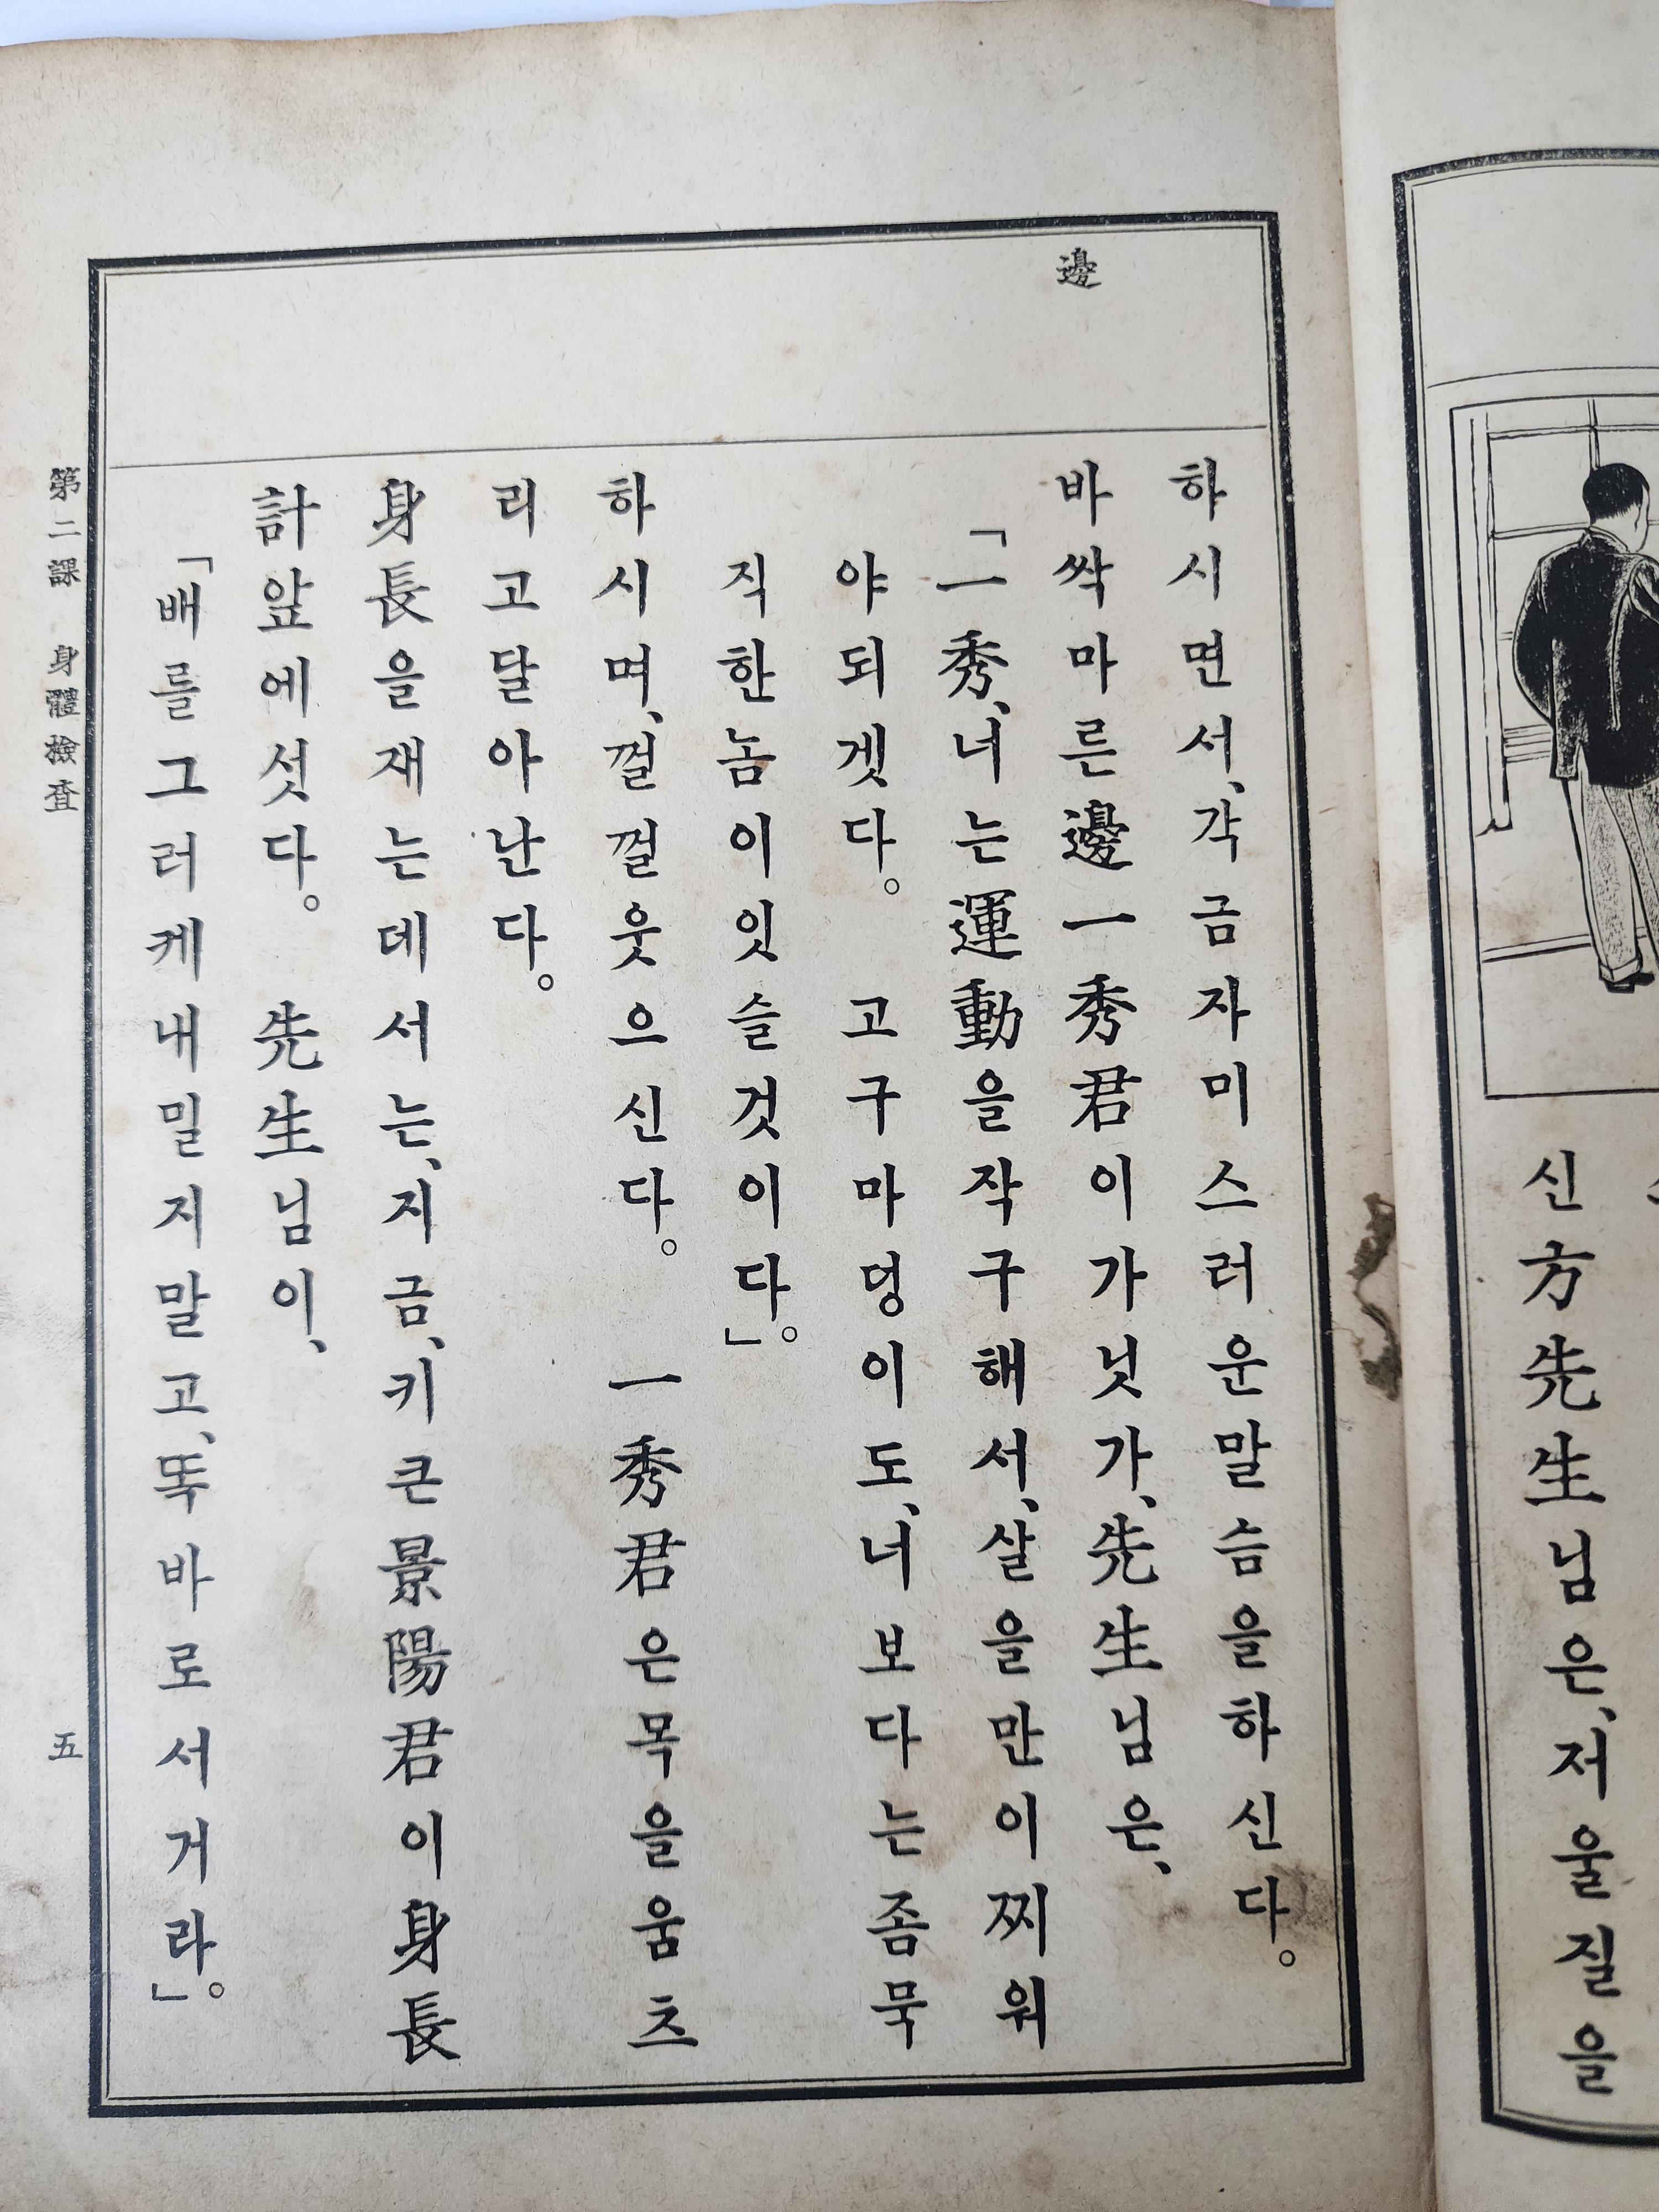 신方先生님은、저울질을
邊
하시면서、각금자미스러운말슴을하신다。
바싹마른邊一秀君이가닛가、先生님은、
「一秀、너는運動을작구해서、살을만이찌워
야되겟다。 고구마덩이도、너보다는좀묵
직한놈이잇슬것이다」。
하시며、껄껄웃으신다。 一秀君은목을움츠
리고달아난다。
身長을재는데서는、지금、키큰景陽君이身長
計앞에섯다。 先生님이、
「배를그러케내밀지말고、똑바로서거라」。
第二課 身體檢査 五